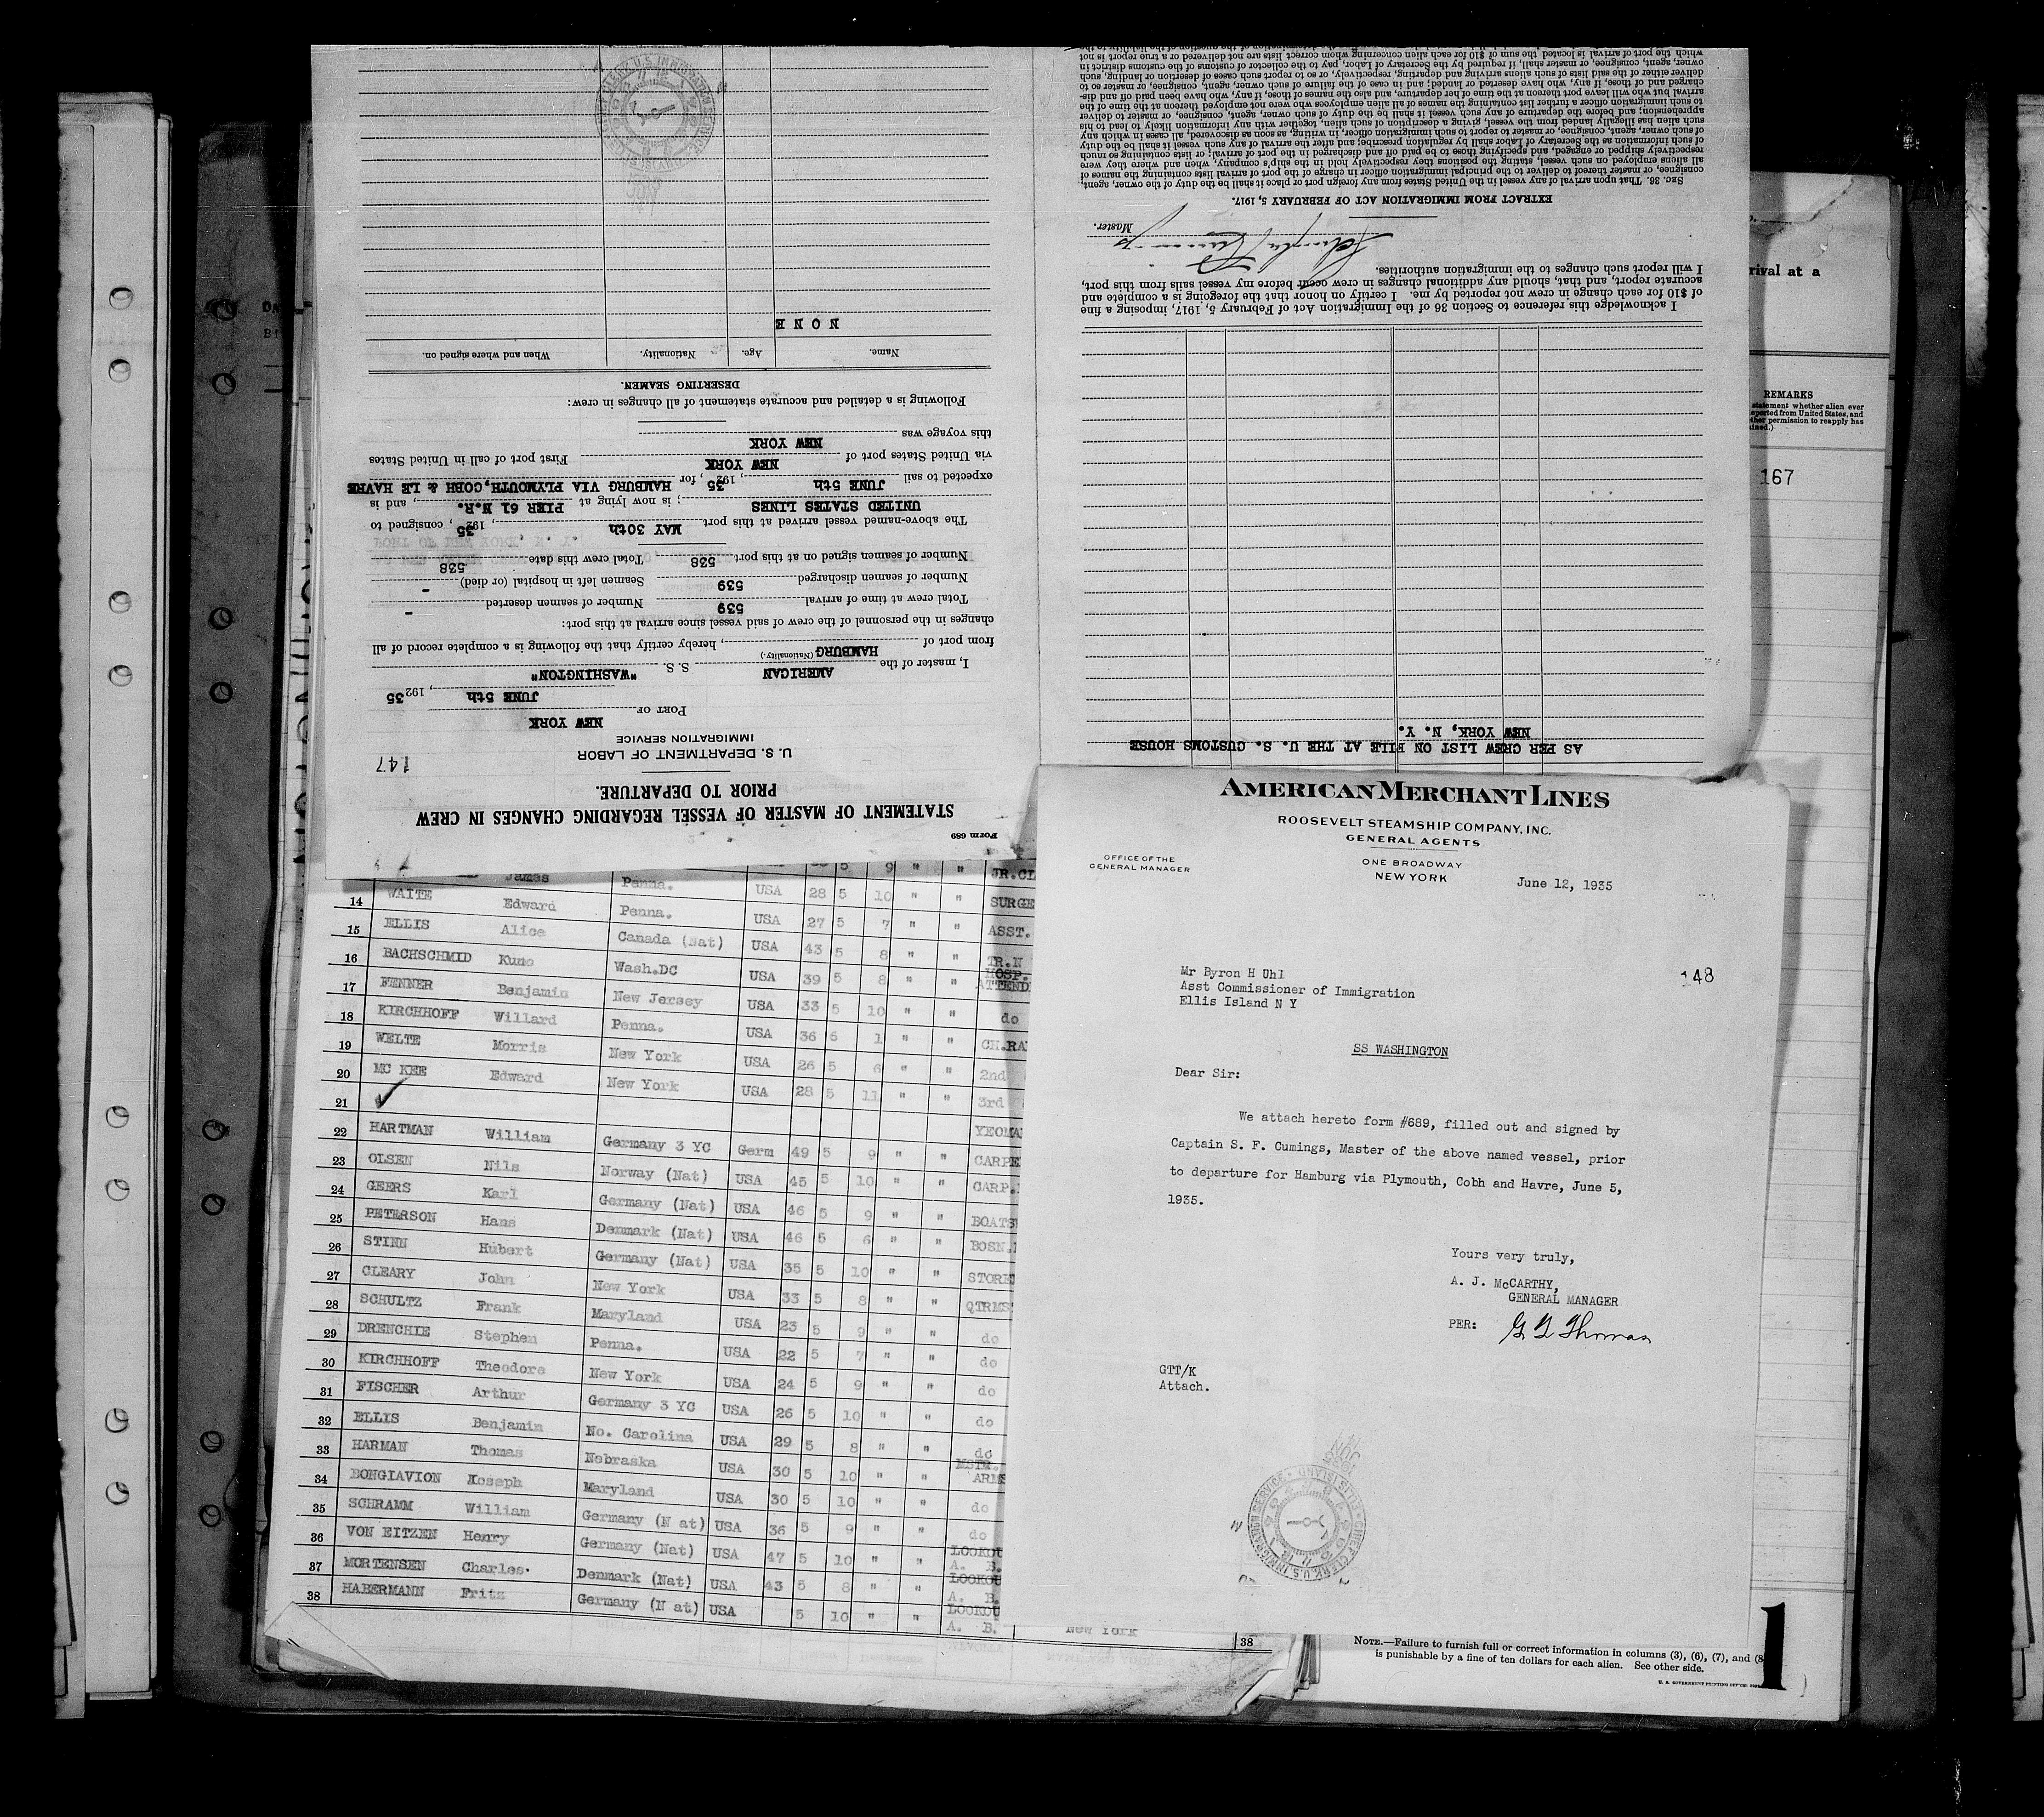 Form 689
STATEMENT OF MASTER OF VESSEL REGARDING CHANGES IN CREW
PRIOR TO DEPARTURE.
147
U. S. DEPARTMENT OF LABOR
IMMIGRATION SERVICE
PORT OF NEW YORK
JUNE 5th, 192 35
I, master of the AMERICAN (Nationality.) S. S. "WASHINGTON"
from port of HAMBURG, hereby certify that the following is a complete record of all
changes in the personnel of the crew of said vessel since arrival at this port:
Total crew at time of arrival 539 Number of seamen deserted -
Number of seamen discharged 539 Seamen left in hospital (or died) -
Number of seamen signed on at this port 538 Total crew this date 538
The above-named vessel arrived at this port MAY 30th, 192 35, consigned to
UNITED STATES LINES; is now lying at PIER 61 N.R., and is
expected to sail JUNE 5th, 192 35, for HAMBURG VIA PLYMOUTH, COBH & LE HAVRE
via United States port of NEW YORK First port of call in United States
this voyage was NEW YORK
Following is a detailed and accurate statement of all changes in crew:
DESERTING SEAMEN.
Name. Age. Nationality. When and where signed on.
NONE
AS PER CREW LIST ON FILE AT THE U. S. CUSTOMS HOUSE
NEW YORK, N. Y.
I acknowledge this reference to Section 36 of the Immigration Act of February 5, 1917, imposing a fine
of $10 for each change in crew not reported by me. I certify on honor that the foregoing is a complete and
accurate report, and that, should any additional changes in crew occur before my vessel sails from this port,
I will report such changes to the immigration authorities.
Master.
EXTRACT FROM IMMIGRATION ACT OF FEBRUARY 5, 1917.
SEC. 36. That upon arrival of any vessel in the United States from any foreign port or place it shall be the duty of the owner, agent,
consignee, or master thereof to deliver to the principal immigration officer in charge of the port of arrival lists containing the names of
all aliens employed on such vessel, stating the positions they respectively hold in the ship's company, when and where they were
respectively shipped or engaged, and specifying those to be paid off and discharged in the port of arrival; or lists containing so much
of such information as the Secretary of Labor shall by regulation prescribe; and after the arrival of any such vessel it shall be the duty
of such owner, agent, consignee, or master to report to such immigration officer, in writing, as soon as discovered, all cases in which any
such alien has illegally landed from the vessel, giving a description of such alien, together with any information likely to lead to his
apprehension; and before the departure of any such vessel it shall be the duty of such owner, agent, consignee, or master to deliver
to such immigration officer a further list containing the names of all alien employees who were not employed thereon at the time of the
arrival but who will leave port thereon at the time of her departure, and also the names of those, if any, who have been paid off and dis-
charged and of those, if any, who have deserted or landed; and in case of the failure of such owner, agent, consignee, or master so to
deliver either of the said lists of such aliens arriving and departing, respectively, or so to report such cases of desertion or landing, such
owner, agent, consignee, or master shall, if required by the Secretary of Labor, pay to the collector of customs of the customs district in
which the port of arrival is located the sum of $10 for each alien concerning whom correct lists are not delivered or a true report is not
rival at a
REMARKS
statement whether alien ever
ported from United States, and
permission to reapply has
167
James Penna. USA 28 5 10 " " SURGE
14 WAITE Edward Penna. USA 27 5 7 " " ASST.
15 ELLIS Alice Canada (Nat) USA 43 5 8 " " TR.N
16 BACHSCHMID Kuno Wash.DC USA 39 5 8 " " HOSP. ATTEND
17 FENNER Benjamin New Jersey USA 33 5 10 " " do
18 KIRCHHOFF Willard Penna. USA 36 6 1 " " CH.RA
19 WELTE Morris New York USA 26 5 6 " " 2nd
20 MC KEE Edward New York USA 28 5 11 " " 3rd
21 YEOMA
22 HARTMAN William Germany 3 YC Germ 49 5 9 " " CARPE
23 OLSEN Nils Norway (Nat) USA 45 5 10 " " CARP.
24 GEERS Karl Germany (Nat) USA 46 5 9 " " BOATS
25 PETERSON Hans Denmark (Nat) USA 46 5 6 " " BOSN.
26 STINN Hubert Germany (Nat) USA 35 5 10 " " STORE
27 CLEARY John New York USA 33 5 8 " " QTRMS
28 SCHULTZ Frank Maryland USA 23 5 9 " " do
29 DRENCHIE Stephen Penna. USA 22 5 7 " " do
30 KIRCHHOFF Theodore New York USA 24 5 9 " " do
31 FISCHER Arthur Germany 3 YC USA 26 5 10 " " do
32 ELLIS Benjamin No. Carolina USA 29 5 8 " " do
33 HARMAN Thomas Nebraska USA 30 5 10 " " MSTR. ARMS
34 BONGIAVION Koseph Maryland USA 30 5 10 " " do
35 SCHRAMM William Germany (N at) USA 36 5 9 " " do
36 VON EITZEN Henry Germany (Nat) USA 47 5 10 " " LOOKOU A. B.
37 MORTENSEN Charles Denmark (Nat) USA 43 5 8 " " LOOKOU A. B.
38 HABERMANN Fritz Germany (N at) USA 5 10 " " LOOKOU A. B. New York
38
AMERICAN MERCHANT LINES
ROOSEVELT STEAMSHIP COMPANY, INC.
GENERAL AGENTS
OFFICE OF THE
GENERAL MANAGER
ONE BROADWAY
NEW YORK
June 12, 1935
148
Mr Byron H Uhl
Asst Commissioner of Immigration
Ellis Island N Y
SS WASHINGTON
Dear Sir:
We attach hereto form #689, filled out and signed by
Captain S. F. Cumings, Master of the above named vessel, prior
to departure for Hamburg via Plymouth, Cobh and Havre, June 5,
1935.
Yours very truly,
A. J. McCARTHY,
GENERAL MANAGER
PER: G T Thomas
GTT/K
Attach.
CHIEF CLERK, U.S. IMMIGRATION SERVICE · ELLIS ISLAND
NOTE.—Failure to furnish full or correct information in columns (3), (6), (7), and (8
is punishable by a fine of ten dollars for each alien. See other side.
1